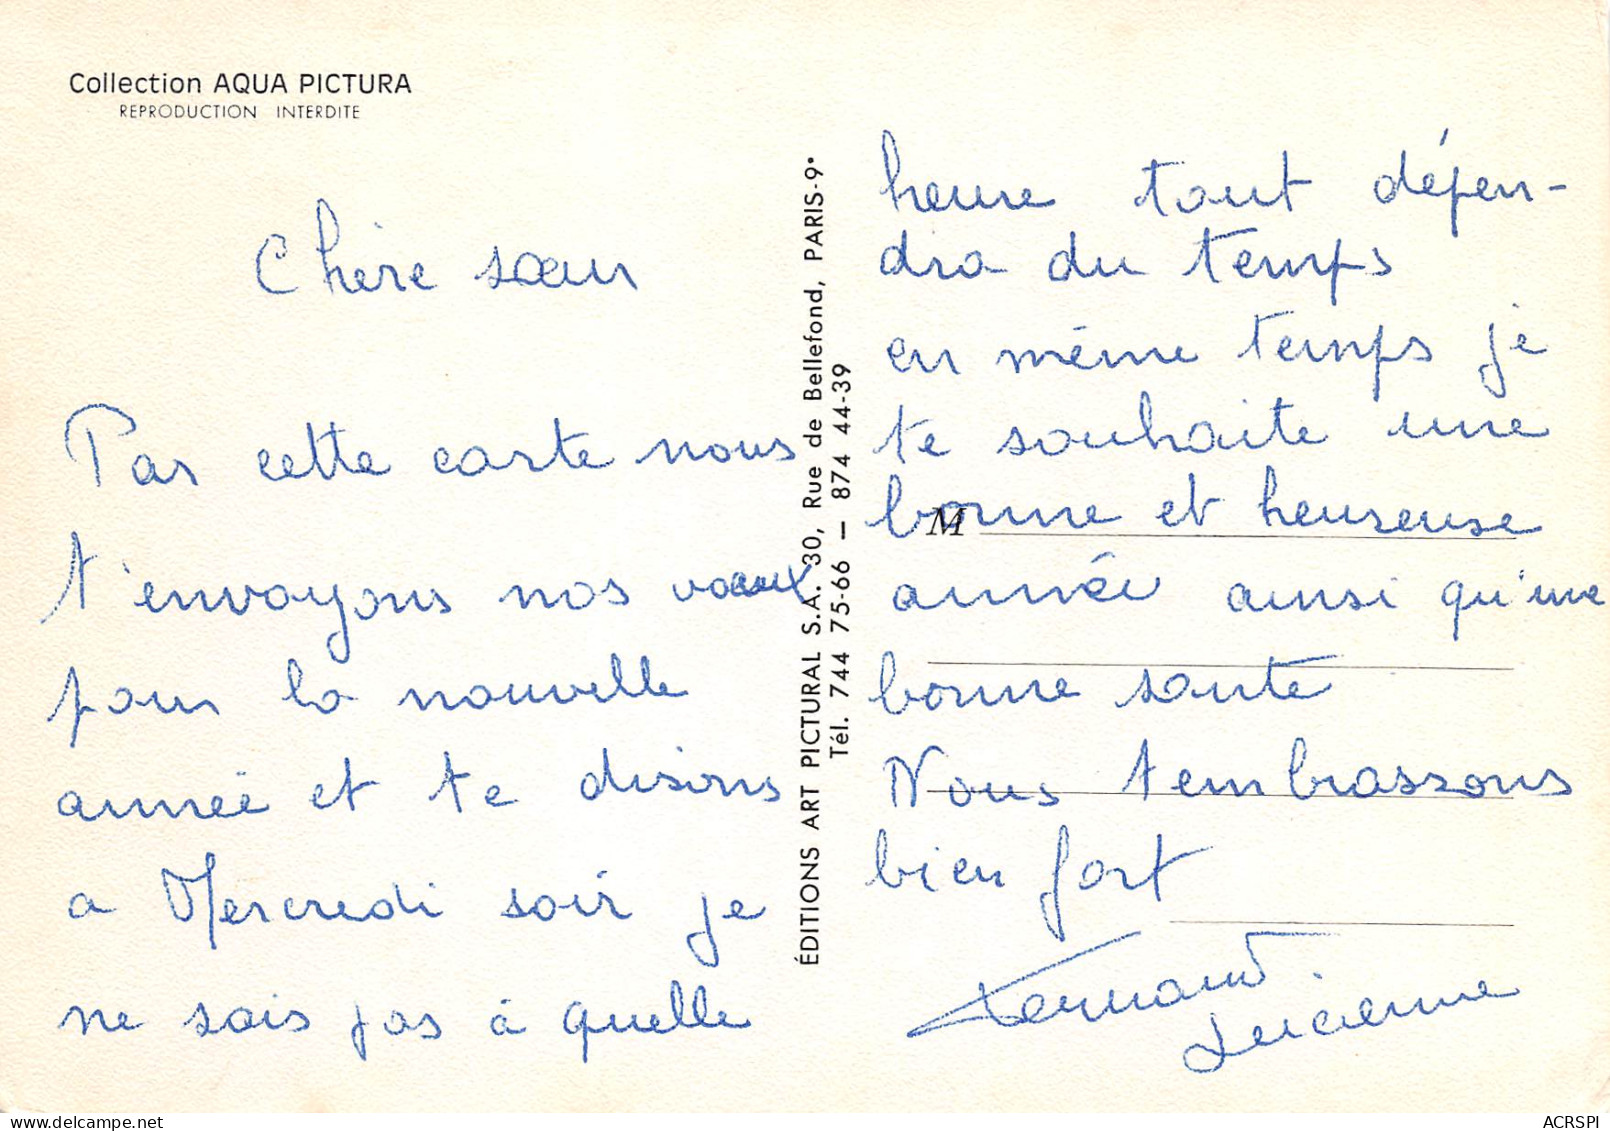 Collection AQUA PICTURA
REPRODUCTION INTERDITE
Chère sœur
Par cette carte nous
t'envoyons nos vœux
pour la nouvelle
année et te disons
a Mercredi soir je
ne sais pas à quelle
ÉDITIONS ART PICTURAL S.A. 30, Rue de Bellefond, PARIS-9e
Tél. 744 75-66 — 874 44-39
heure tout dépen-
dra du temps
en même temps je
te souhaite une
bonne et heureuse
M
année ainsi qu'une
bonne santé
Nous t'embrassons
bien fort
Fernand
Lucienne
ACRSPI